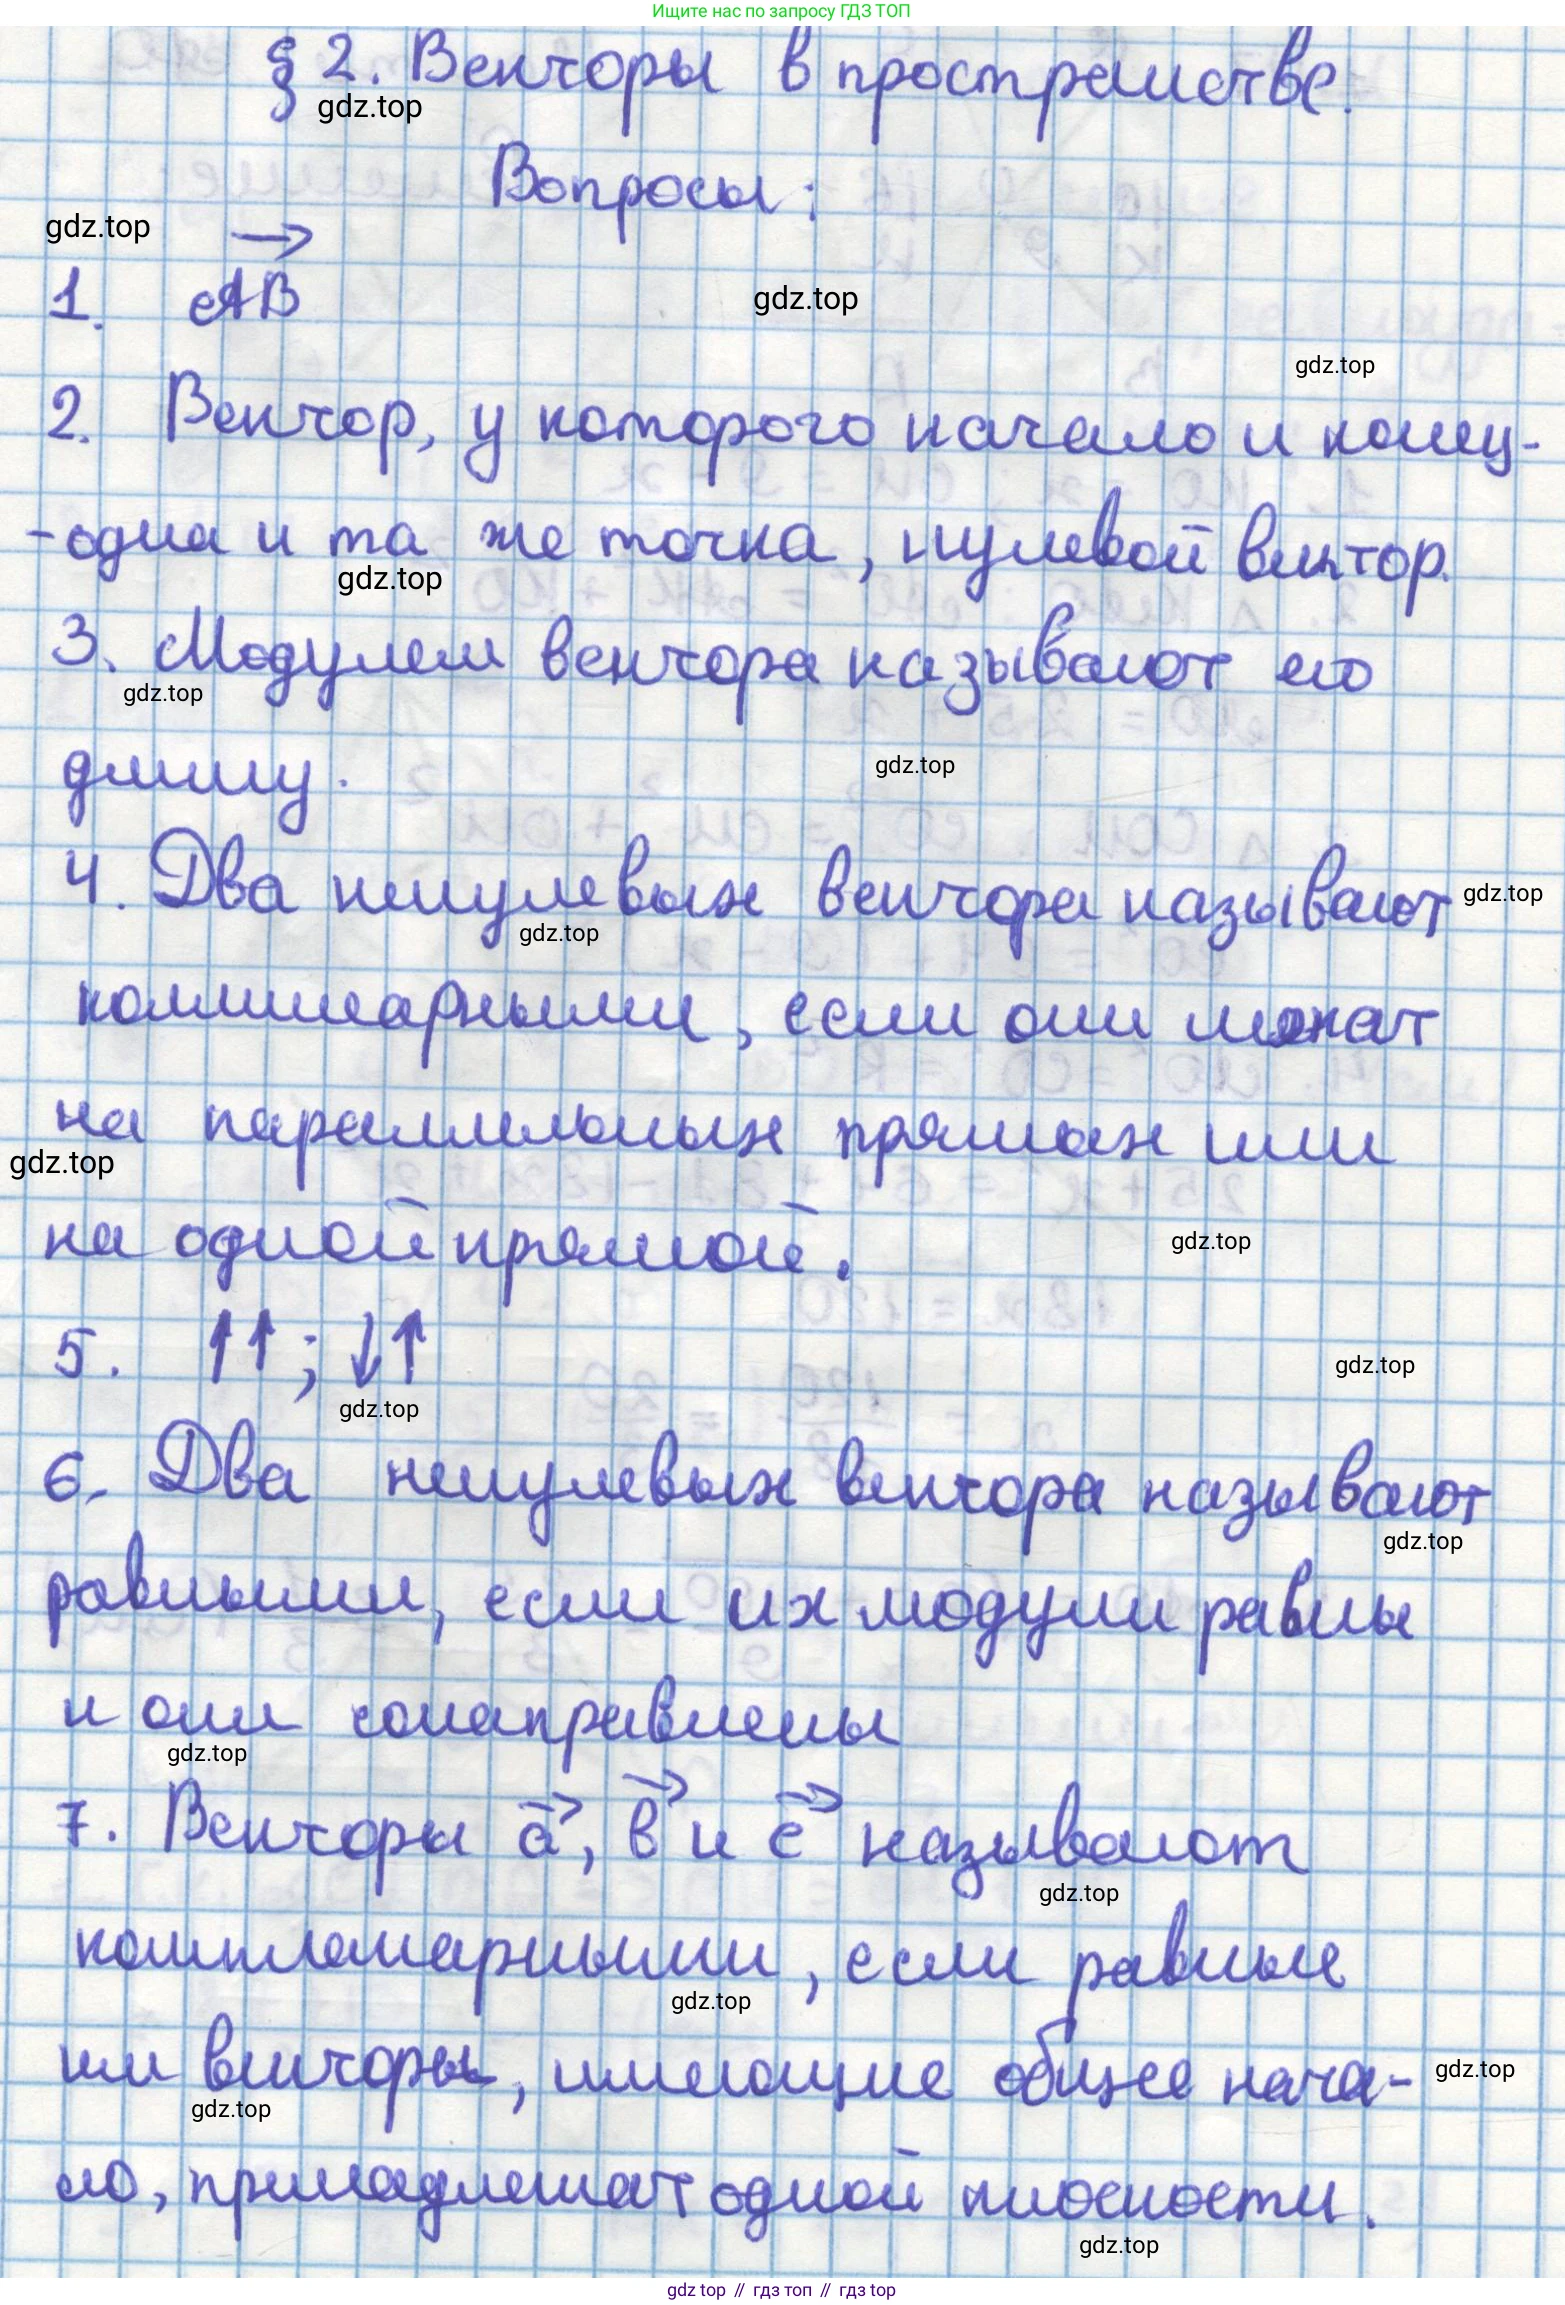 Ищите нас по запросу ГДЗ ТОП
§ 2. Векторы в пространстве.
gdz.top
Вопросы:
gdz.top
1. AB
gdz.top
gdz.top
2. Вектор, у которого начало и конец-
-одна и та же точка, нулевой вектор.
gdz.top
3. Модулем вектора называют его
gdz.top
длину.
gdz.top
4. Два ненулевых вектора называют
gdz.top
gdz.top
коллинеарными, если они лежат
на параллельных прямых или
gdz.top
на одной прямой.
gdz.top
5. ↑↑; ↓↑
gdz.top
gdz.top
6. Два ненулевых вектора называют
gdz.top
равными, если их модули равны
и они сонаправлены
gdz.top
7. Векторы a, в и c называют
gdz.top
компланарными, если равные
gdz.top
им векторы, имеющие общее нача-
gdz.top
gdz.top
ло, принадлежат одной плоскости.
gdz.top
gdz top // гдз топ // гдз top